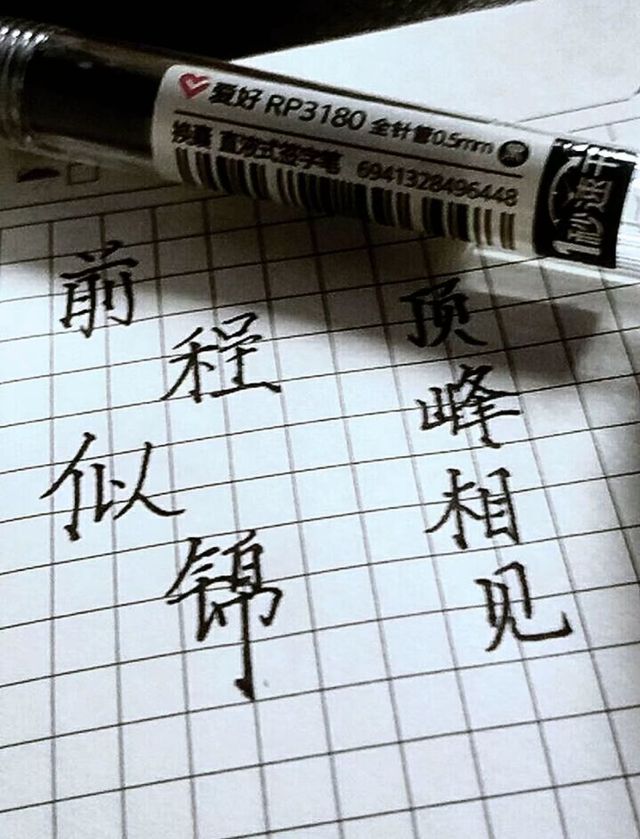 爱好 RP3180 全针管0.5mm 黑
换囊 直液式签字笔 6941328496448
1秒速干
前程似锦
顶峰相见